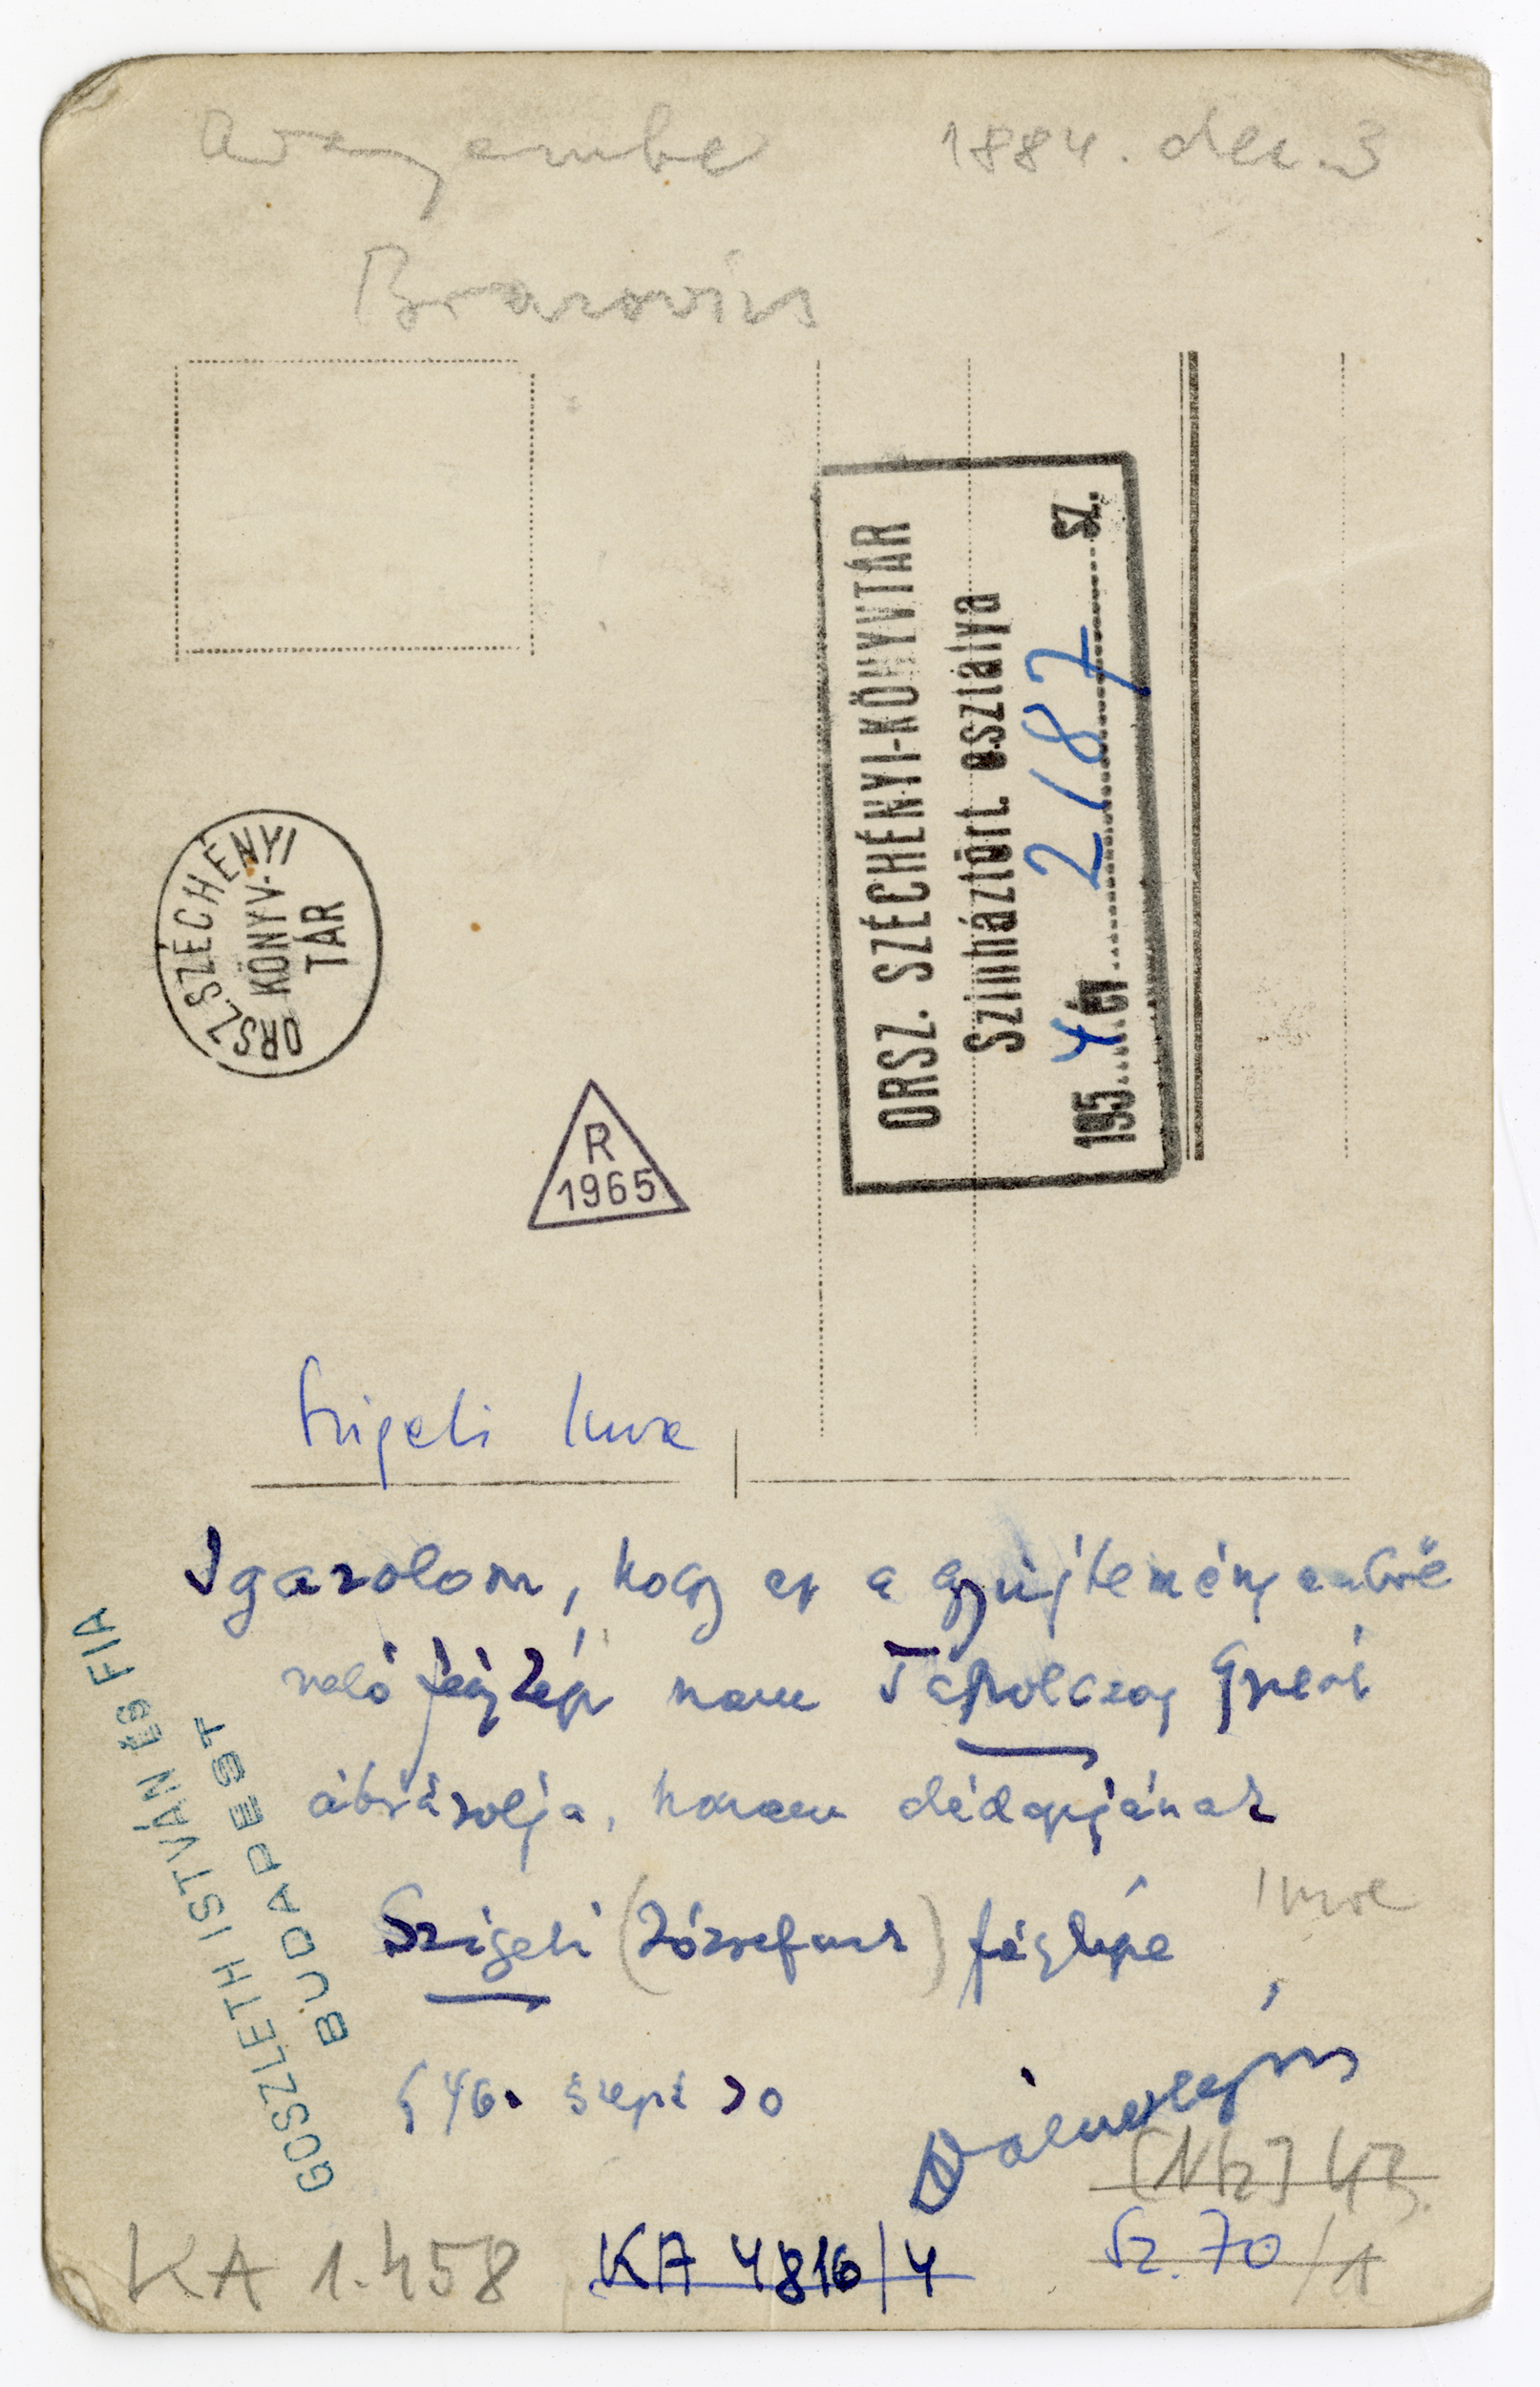 Aranyember 1884. dec. 3
Brazovics
ORSZ. SZÉCHÉNYI-KÖNYVTÁR
Színháztört. osztálya
195 4 év 2187 sz.
ORSZ. SZÉCHÉNYI
KÖNYV-
TÁR
R
1965
Szigeti Imre
Igazolom, hogy ez a gyűjteményembe
való fénykép nem Tapolczay
ábrázolja, hanem dédapjának
Szigeti (Józsefnek) fényképe Imre
946. szept 20
GOSZLETH ISTVÁN ÉS FIA
BUDAPEST
KA 1.458
KA 4816/4
Sz. 70/1